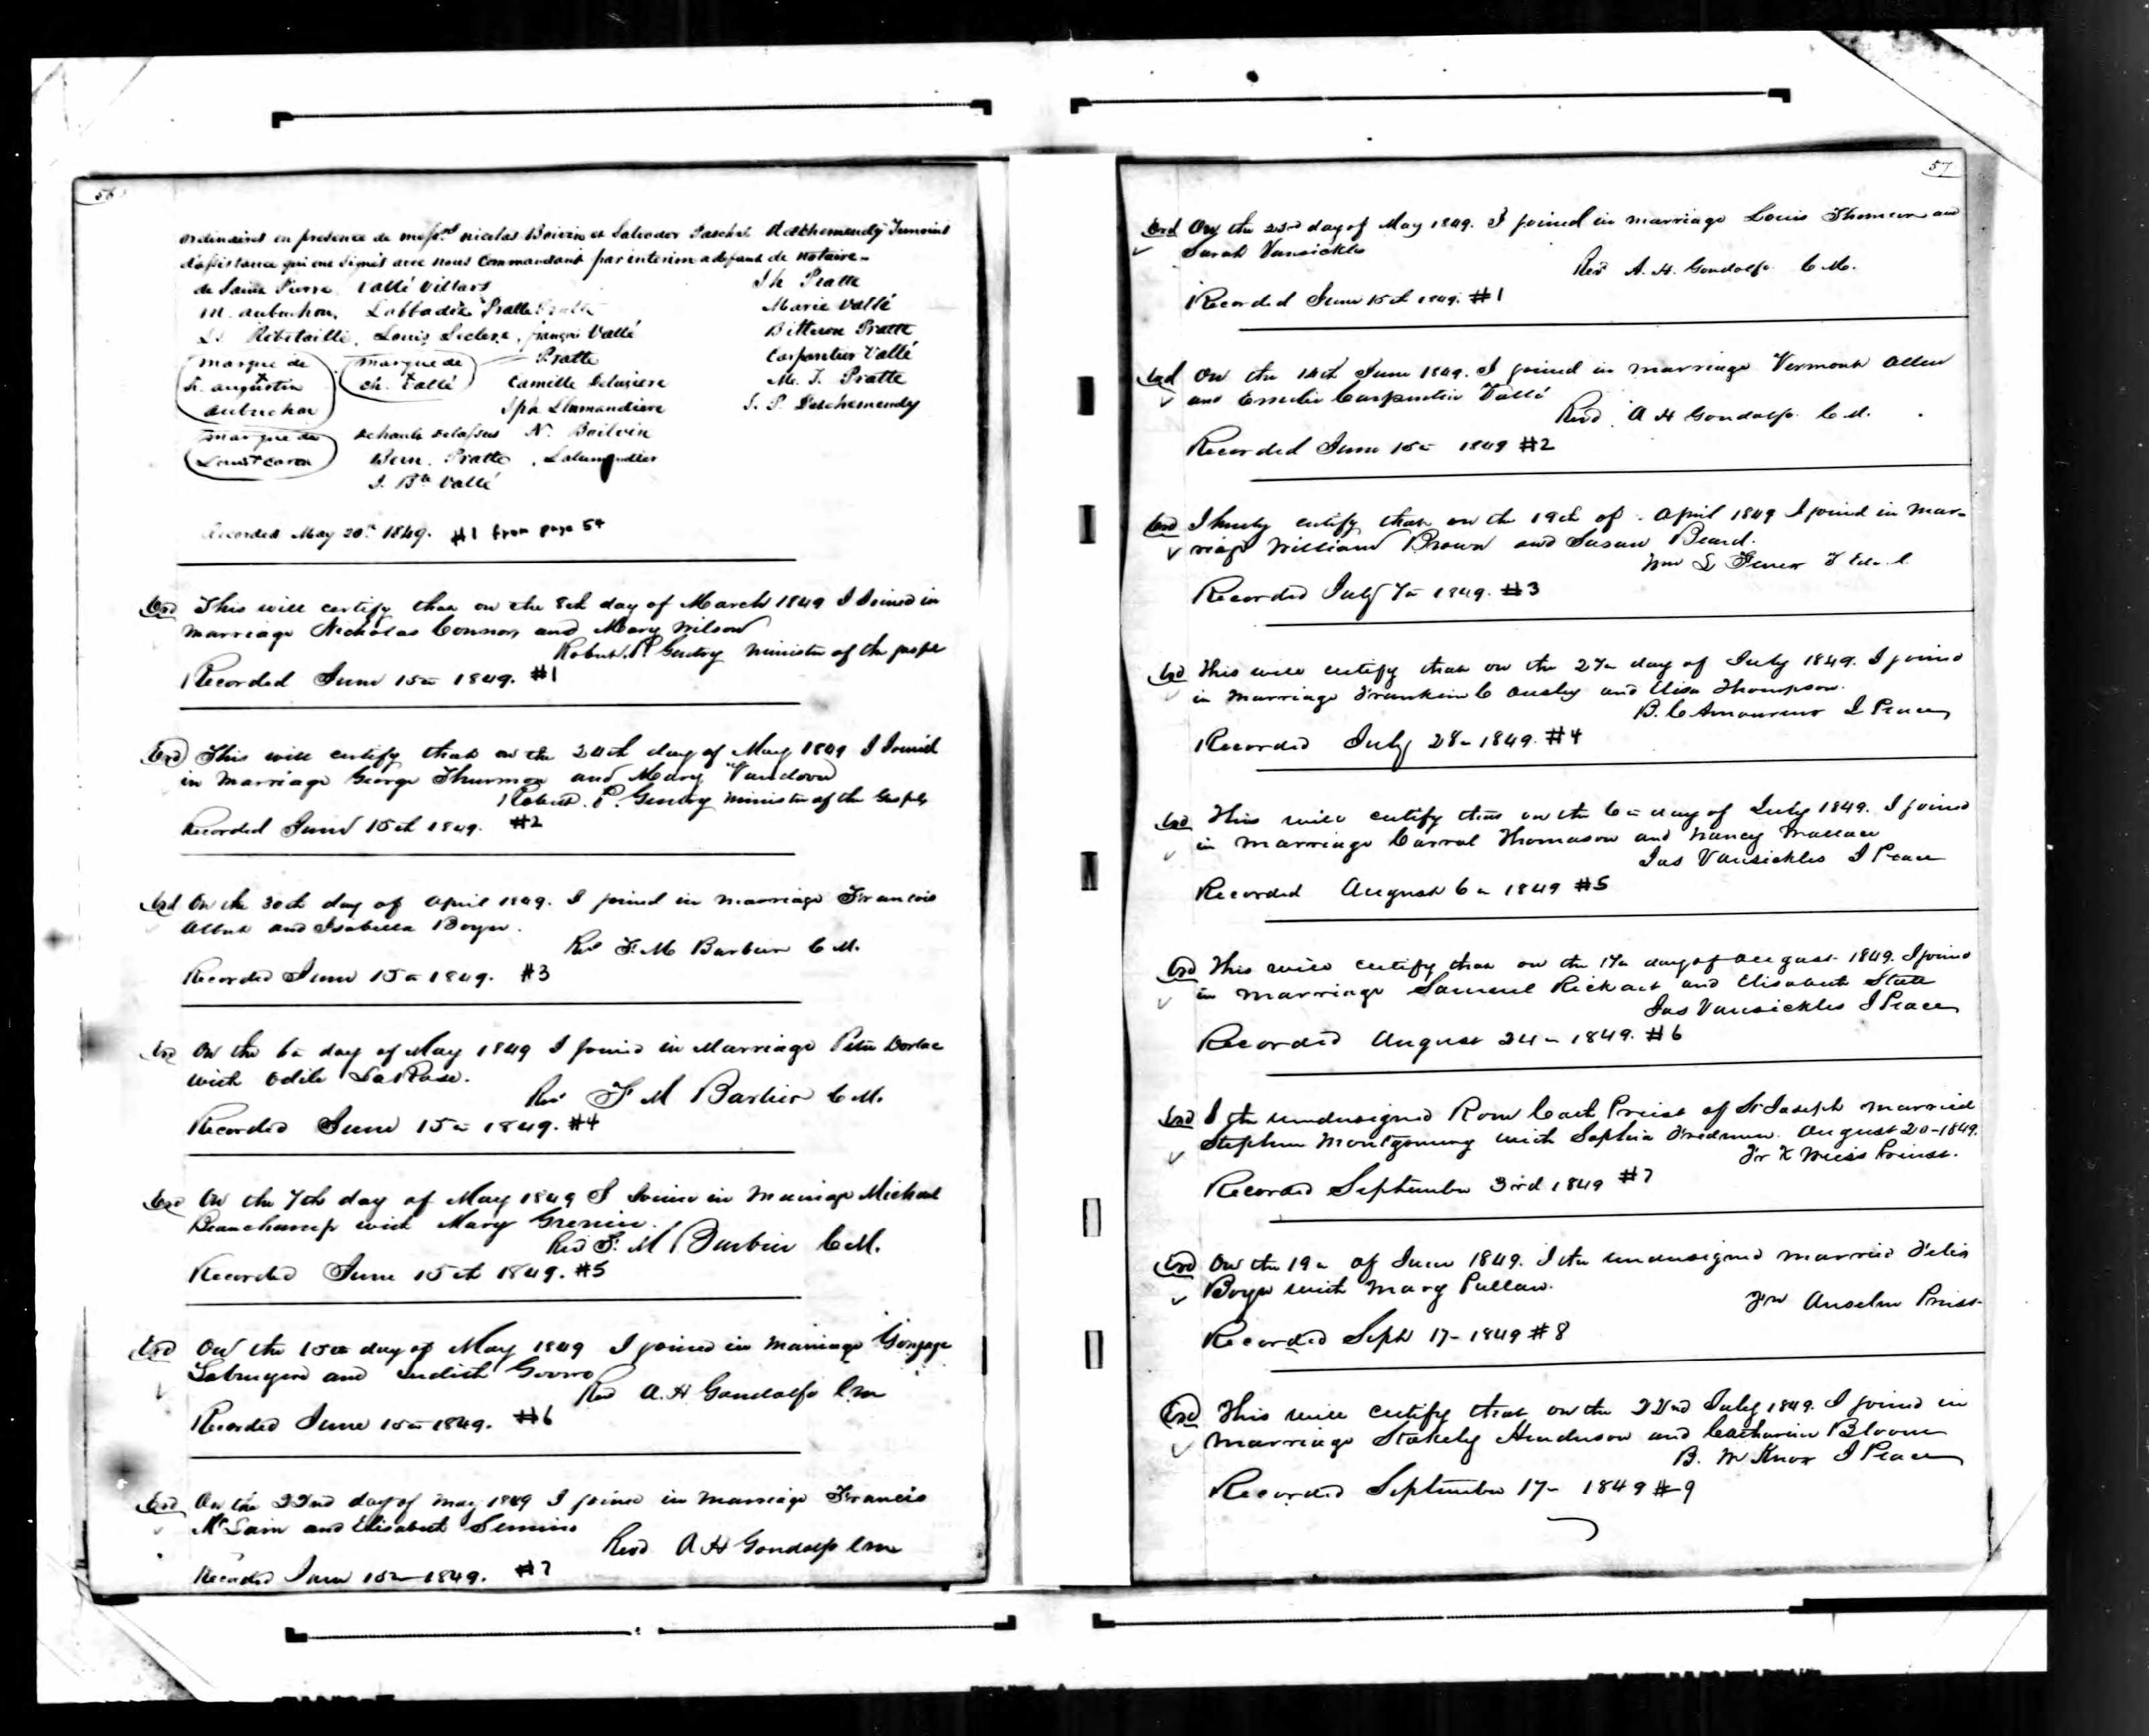 56
ordinaires en presence de mess.rs nicolas Boivin et Salvador Paschel Deschemendy Temoins
d'assistance qui ont signés avec nous Commandant par interim a defaut de notaire -
de Saint Pierre Vallé Villars Th Pratte
M. aubuchon, Labbadie Pratte Pratte Marie Vallé
Ls Ribetaille, Louis Leclere, françois Vallé Bitteron Pratte
marque de marque de Pratte Carpentier Vallé
St. augustin + ch. Vallé Camille Delusiere M. T. Pratte
aubuchon Lamandiere J. P. Deschemendy
marque de dehault delassus N. Boilvin
Louis + caron Bern. Pratte, Lalumondier
J. Bte Vallé
Recorded May 20th 1849. #1 from page 54
Ord This will certify that on the 8th day of March 1849 I Joined in
marriage Nicholas Connor and Mary Wilson
Robert. P. Gentry minister of the gospel
Recorded June 15th 1849. #1
Ord This will certify that on the 24th day of May 1849 I Joined
in marriage George Thurmon and Mary Vandover
Robert. P. Gentry minister of the Gospel
Recorded June 15th 1849. #2
Ord On the 30th day of April 1849. I joined in marriage Francois
Albert and Isabella Boyer.
Rev F. M Barbier C M.
Recorded June 15th 1849. #3
Ord On the 6th day of May 1849 I joined in Marriage Peter Dorlac
with Odile LaRose.
Rev F M Barbier C M.
Recorded June 15th 1849. #4
Ord On the 7th day of May 1849 I Joined in Marriage Michael
Beauchamp with Mary Grenier.
Rev F. M Barbier C M.
Recorded June 15th 1849. #5
Ord On the 15th day of May 1849 I joined in marriage Gonzage
Labruyere and Judith Govro
Rev A. H Gandolfo Cm
Recorded June 15th 1849. #6
Ord On the 22nd day of May 1849 I joined in marriage Francis
McLain and Elisabeth
Revd A H Gandolfo Cm
Recorded June 15th 1849. #7
57
Ord On the 23rd day of May 1849. I joined in marriage Louis Thomure and
Sarah Vansickle
Rev A. H. Gandolfo C M.
Recorded June 15th 1849. #1
Ord On the 14th June 1849. I joined in marriage Vermont Allen
and Carpentier Vallé
Revd A H Gandolfo C M.
Recorded June 15th 1849 #2
Ord I hereby certify that on the 19th of April 1849 I joined in mar-
riage William Brown and Susan Beard.
Wm S
Recorded July 7th 1849. #3
Ord This will certify that on the 27th day of July 1849. I joined
in marriage Frankin C Ousley and Elisa Thompson.
B. C Amoureux J Peace
Recorded July 28th 1849. #4
Ord This will certify that on the 6th day of July 1849. I joined
in marriage Carrol Thomason and Nancy Wallace
Jas Vansickles J Peace
Recorded August 6th 1849 #5
Ord This will certify that on the 17th day of august 1849. I joined
in marriage Samuel Rickart and Elisabeth State
Jas Vansickles J Peace
Recorded August 24th 1849. #6
Ord I the undersigned Rom Cath Priest of St Joseph married
Stephen Montgomery with Sophia Friedman. August 20 - 1849.
Fr X Weiss Priest.
Recorded September 3rd 1849 #7
Ord On the 19th of June 1849. I the undersigned married Felix
Boyer with Mary Pullam.
Fr Anselm Priest
Recorded Sept 17 - 1849 #8
Ord This will certify that on the 22nd July 1849. I joined in
marriage Stakely Henderson and Catharine Bloom
B. M Knox J Peace
Recorded September 17 - 1849 #9